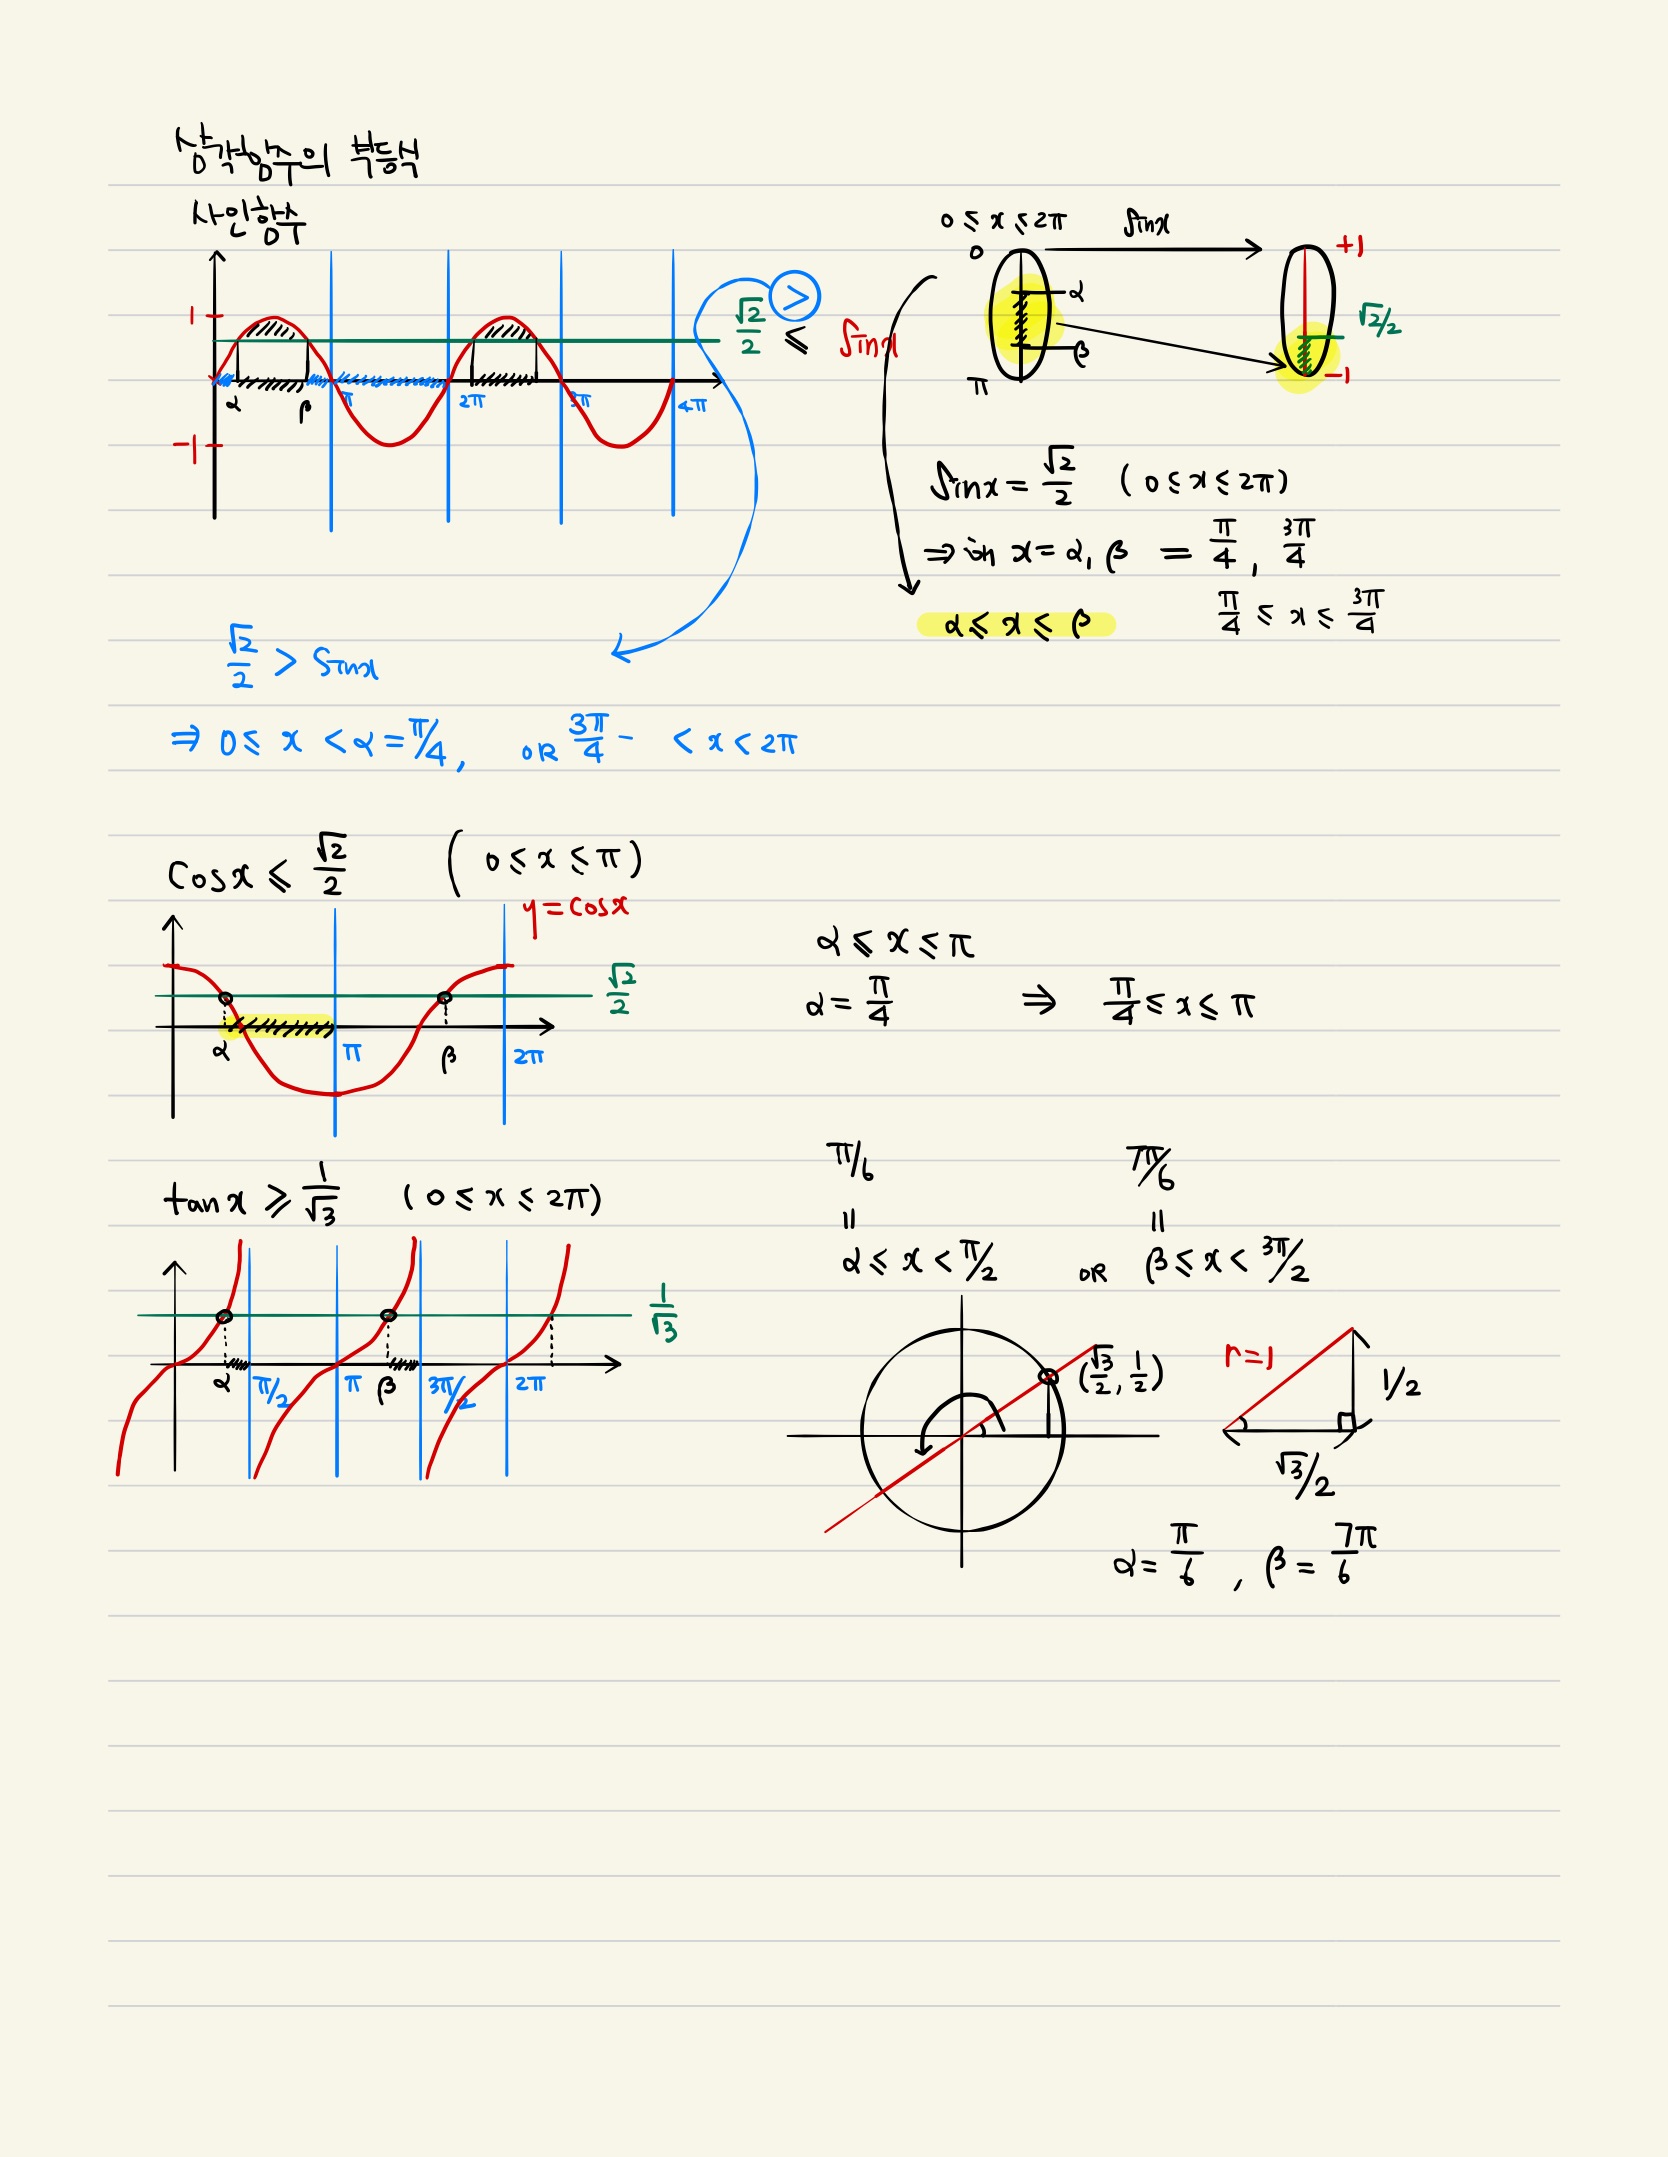 삼각함수의 부등식
사인함수
1
-1
α β π 2π 3π 4π
√2/2 ≤ sinx
>
0 ≤ x ≤ 2π sinx
0 +1
α
√2/2
β
π -1
sinx = √2/2 (0 ≤ x ≤ 2π)
⇒ x = α, β = π/4, 3π/4
α ≤ x ≤ β π/4 ≤ x ≤ 3π/4
√2/2 > sinx
⇒ 0 ≤ x < α = π/4, OR 3π/4 - < x < 2π
cosx ≤ √2/2 (0 ≤ x ≤ π)
y = cosx
√2/2
α π β 2π
α ≤ x ≤ π
α = π/4 ⇒ π/4 ≤ x ≤ π
tanx ≥ 1/√3 (0 ≤ x ≤ 2π)
1/√3
α π/2 π β 3π/2 2π
π/6 7π/6
= =
α ≤ x < π/2 OR β ≤ x < 3π/2
(√3/2, 1/2)
r=1
1/2
√3/2
α = π/6, β = 7π/6